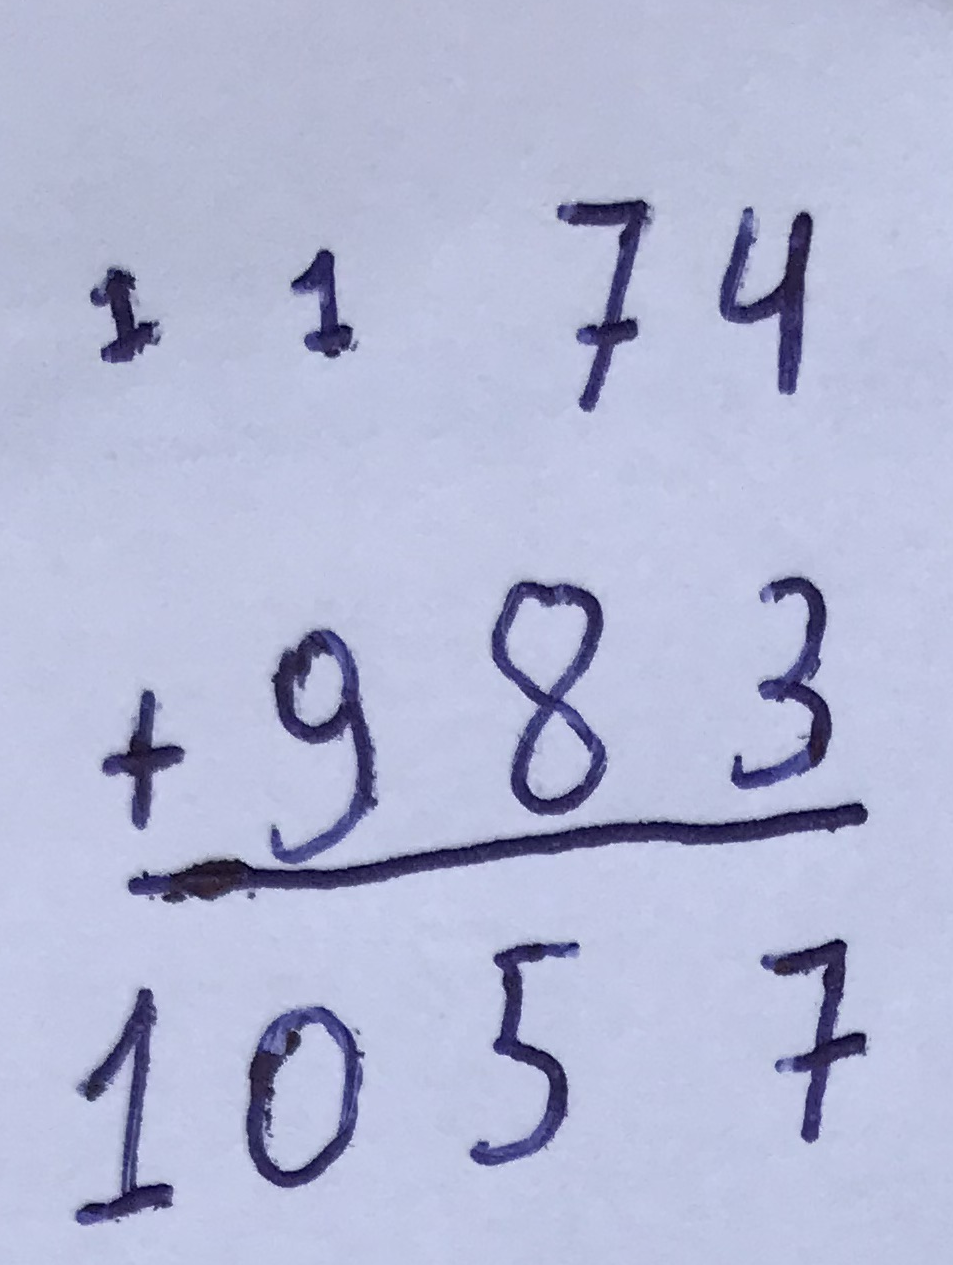 1 1 7 4
+ 9 8 3
1 0 5 7